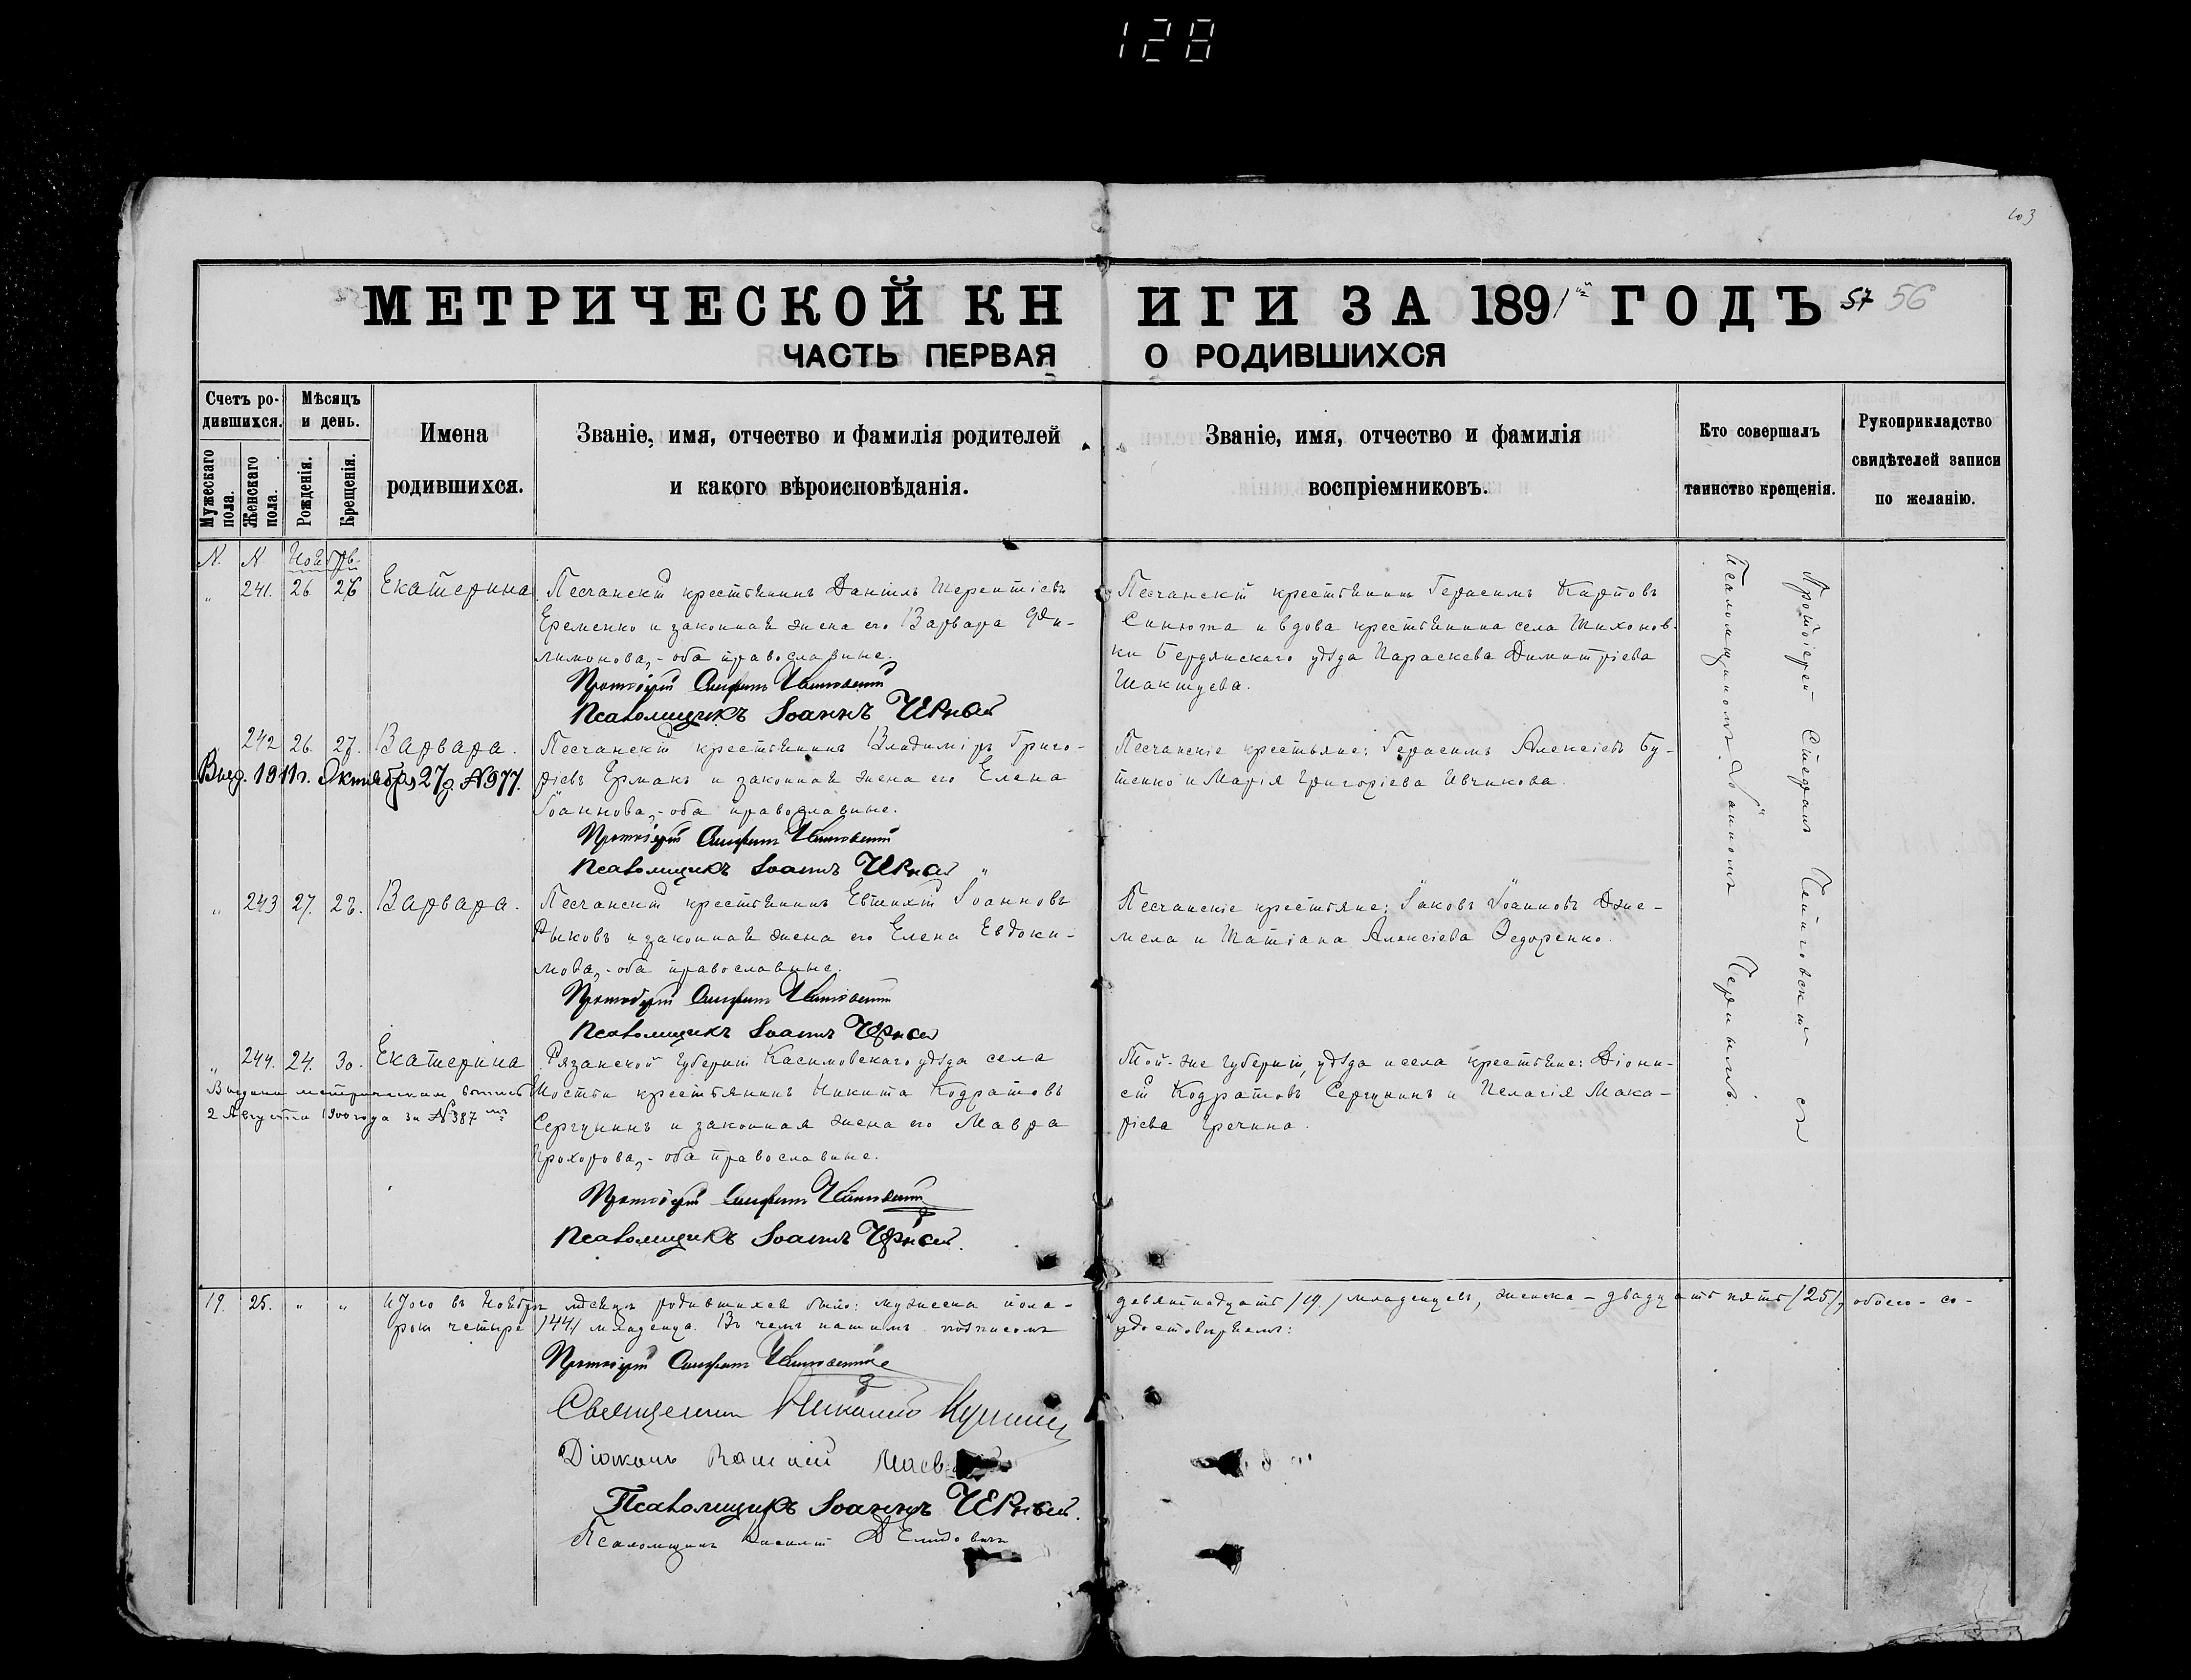 128
103
МЕТРИЧЕСКОЙ КН ИГИ ЗА 1891й ГОДЪ 57 56
ЧАСТЬ ПЕРВАЯ О РОДИВШИХСЯ
Счетъ ро-
дившихся.
Мужескаго пола.
Женскаго пола.
Мѣсяцъ
и день.
Рожденія.
Крещенія.
Имена
родившихся.
Званіе, имя, отчество и фамилія родителей
и какого вѣроисповѣданія.
Званіе, имя, отчество и фамилія
воспріемниковъ.
Кто совершалъ
таинство крещенія.
Рукоприкладство
свидѣтелей записи
по желанію.
N. N. Ноябрь.
„ 241. 26. 26 Екатерина.
Песчанскій крестьянинъ Даніилъ Терентіевъ
Еременко и законная жена его Варвара Фи-
лимонова,- оба православные.
Протоіерей Стефанъ
Псаломщикъ Іоаннъ Черный
Песчанскій крестьянинъ Герасимъ Карповъ
Синюта и вдова крестьянина села Тихонов-
ки Бердянскаго уѣзда Параскева Димитріева
242 26. 27. Варвара.
Выд. 1911г. Октября 27д. №977.
Песчанскій крестьянинъ Владиміръ Григо-
ріевъ Ермакъ и законная жена его Елена
Іоаннова,- оба православные.
Протоіерей Стефанъ
Псаломщикъ Іоаннъ Черный
Песчанскіе крестьяне: Герасимъ Алексіевъ Бу-
тенко и Марія Григоріева Ивчикова.
„ 243 27. 28. Варвара.
Песчанскій крестьянинъ Евтихій Іоанновъ
Рыковъ и законная жена его Елена Евдоки-
мова,- оба православные.
Протоіерей Стефанъ
Псаломщикъ Іоаннъ Черный
Песчанскіе крестьяне: Іаковъ Іоанновъ Дже-
мела и Татіана Алексіева Федоренко.
„ 244. 24. 30. Екатерина
2 Августа 1900 года за №387
Рязанской губерніи Касимовскаго уѣзда села
крестьянинъ Никита Кодратовъ
Сергунинъ и законная жена его Мавра
Прохорова,- оба православные.
Протоіерей Стефанъ
Псаломщикъ Іоаннъ Черный.
Той-же губерніи, уѣзда и села крестьяне: Діони-
сій Кодратовъ Сергунинъ и Пелагія Мака-
ріева Гречина.
Протоіерей Стефанъ съ
Псаломщикомъ Іоанномъ Чернымъ.
19. 25. „ „ Итого въ Ноябрѣ мѣсяцѣ родившихся было: мужеска пола - девятнадцать /19/ младенцевъ, женска - двадцать пять /25/, обоего - со-
рокъ четыре /44/ младенца. Въ чемъ нашимъ подписомъ удостовѣряемъ:
Протоіерей Стефанъ
Священникъ Николай
Діаконъ
Псаломщикъ Іоаннъ Черный.
Псаломщикъ Василій